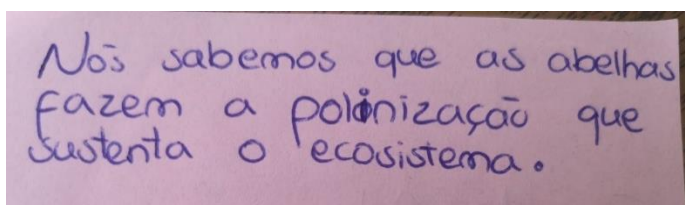 Nós sabemos que as abelhas
fazem a polinização que
sustenta o ecosistema.